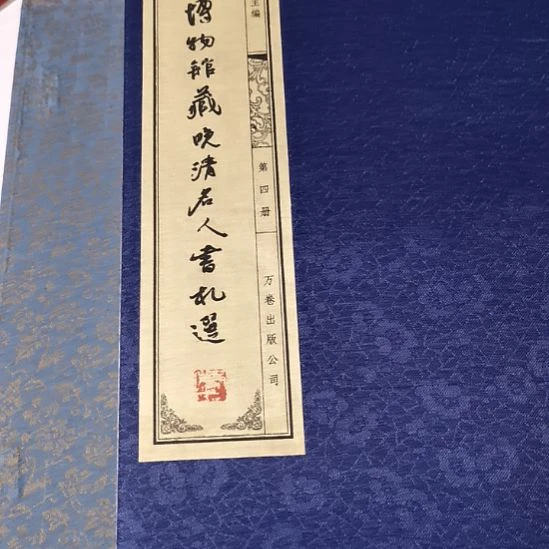 博物館藏晚清名人書札選
主编
第四册
万卷出版公司